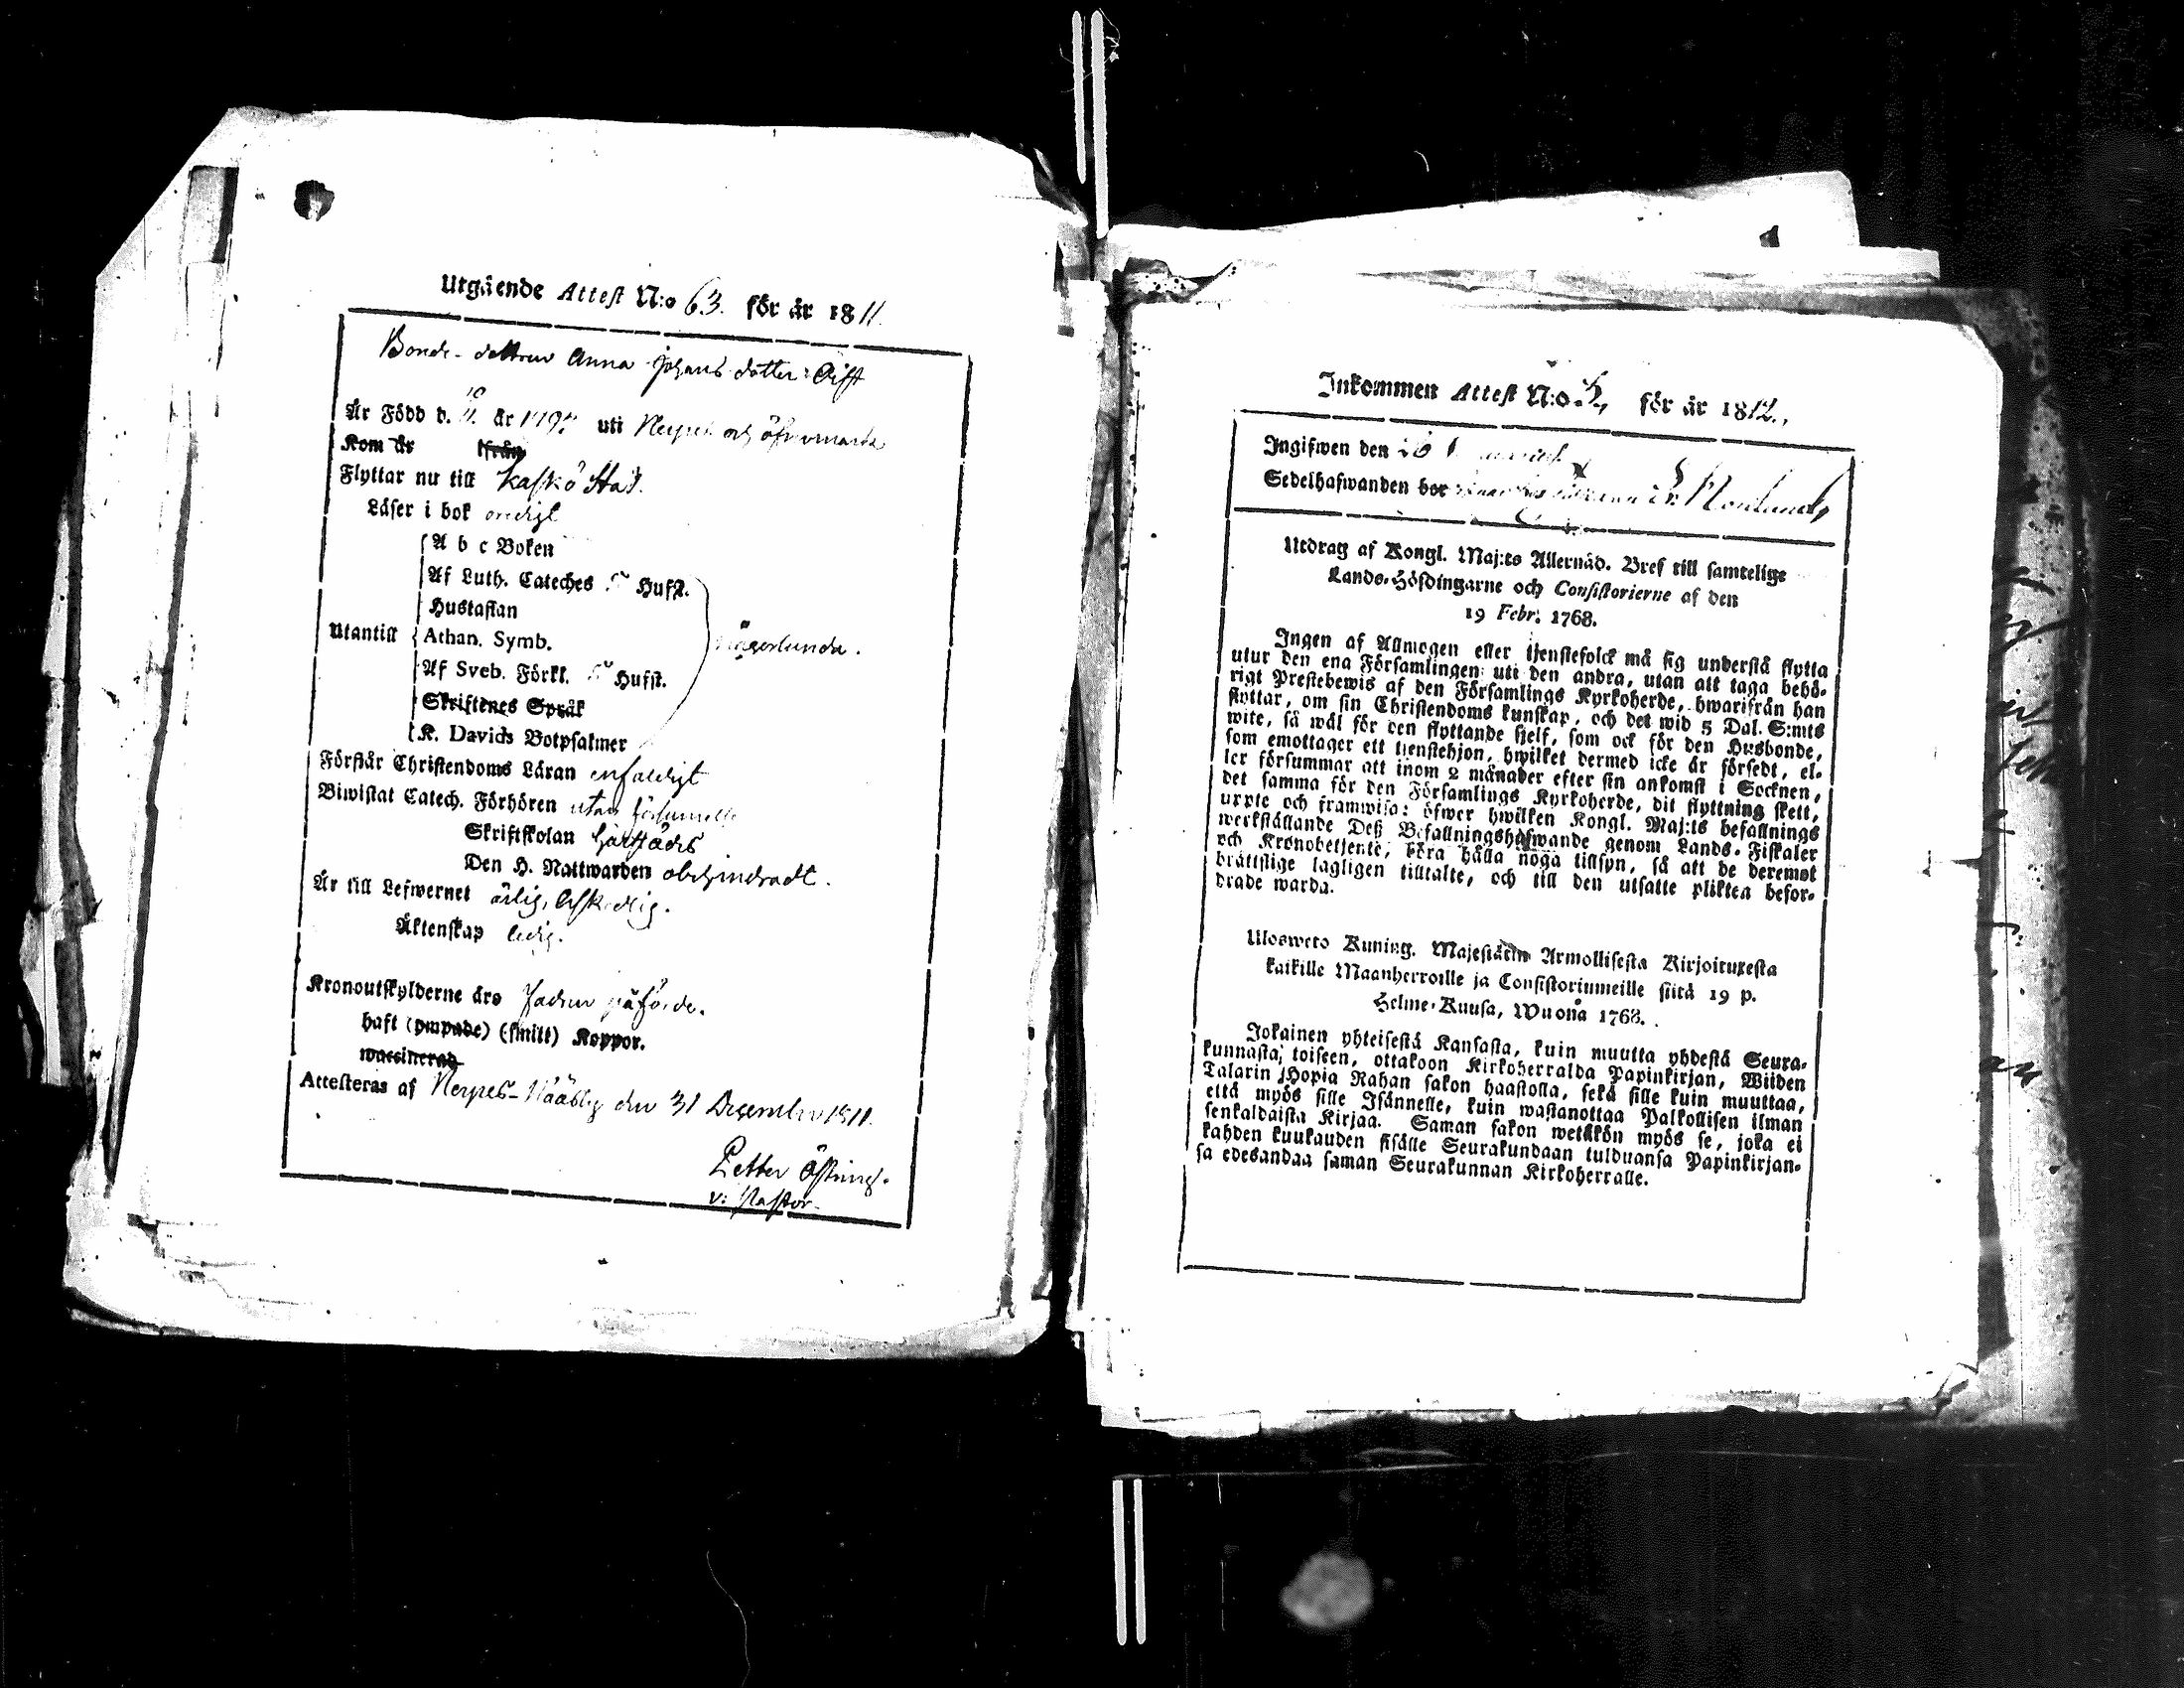 Utgående Attest N:o 63. för år 1811.
Bonde-dottren Anna Johans dotter Gift
Är Född d. år 179 uti Nerpes och öfvermarks
Kom år ifrån
Flyttar nu till Kaskö Stad.
Läser i bok oredigt
A b c Boken
Af Luth. Cateches 5 Hufst.
Hustaflan
Utantill Athan. Symb. någorlunda.
Af Sveb. Förkl. 5 Hufst.
Skriftenes Språk
K. Davids Botpsalmer
Förstår Christendoms Läran enfaldigt
Biwistat Catech. Förhören utan försummelse
Skriftskolan härstädes
Den H. Nattwarden obehindradt.
Är till Lefwernet ärlig, beskedlig.
Äktenskap ledig.
Kronoutskylderne äro fadren påförde.
haft (ympade) (smitt) Koppor.
waccinerad
Attesteras af Nerpes-Nääsby den 31 December 1811.
Petter Östring.
v: Pastor.
Inkommen Attest N:o 5, för år 1812.,
Ingifwen den 26
Sedelhafwanden bor Norlund,
Utdrag af Kongl. Maj:ts Allernåd. Bref till samtelige
Lands-Höfdingarne och Consistorierne af den
19 Febr. 1768.
Ingen af Allmogen eller tjenstefolck må sig understå flytta
utur den ena Församlingen uti den andra, utan att taga behö-
rigt Prestebewis af den Församlings Kyrkoherde, hwarifrån han
flyttar, om sin Christendoms kunskap, och det wid 5 Dal. S:mts
wite, så wäl för den flyttande sjelf, som ock för den Husbonde,
som emottager ett tjenstehjon, hwilket dermed icke är försedt, el-
ler försummar att inom 2 månader efter sin ankomst i Socknen,
det samma för den Församlings Kyrkoherde, dit flyttning skett,
uppte och framwisa: öfwer hwilken Kongl. Maj:ts befallnings
werkställande Deß Befallningshafwande genom Lands-Fiskaler
och Kronobetjente, böra hålla noga tillsyn, så att de deremot
bråttslige lagligen tilltalte, och till den utsatte plikten befor-
drade warda.
Ulosweto Kuning. Majestätin Armollisesta Kirjoituxesta
kaikille Maanherroille ja Consistoriumeille siitä 19 p.
Helme-Kuusa, Wuona 1768.
Jokainen yhteisestä Kansasta, kuin muutta yhdestä Seura-
kunnasta, toiseen, ottakoon Kirkoherralda Papinkirjan, Wiiden
Talarin Hopia Rahan sakon haastolla, sekä sille kuin muuttaa,
että myös sille Isännelle, kuin wastanottaa Palkollisen ilman
senkaldaista Kirjaa. Saman sakon wetäkön myös se, joka ei
kahden kuukauden sisälle Seurakundaan tulduansa Papinkirjan-
sa edesandaa saman Seurakunnan Kirkoherralle.